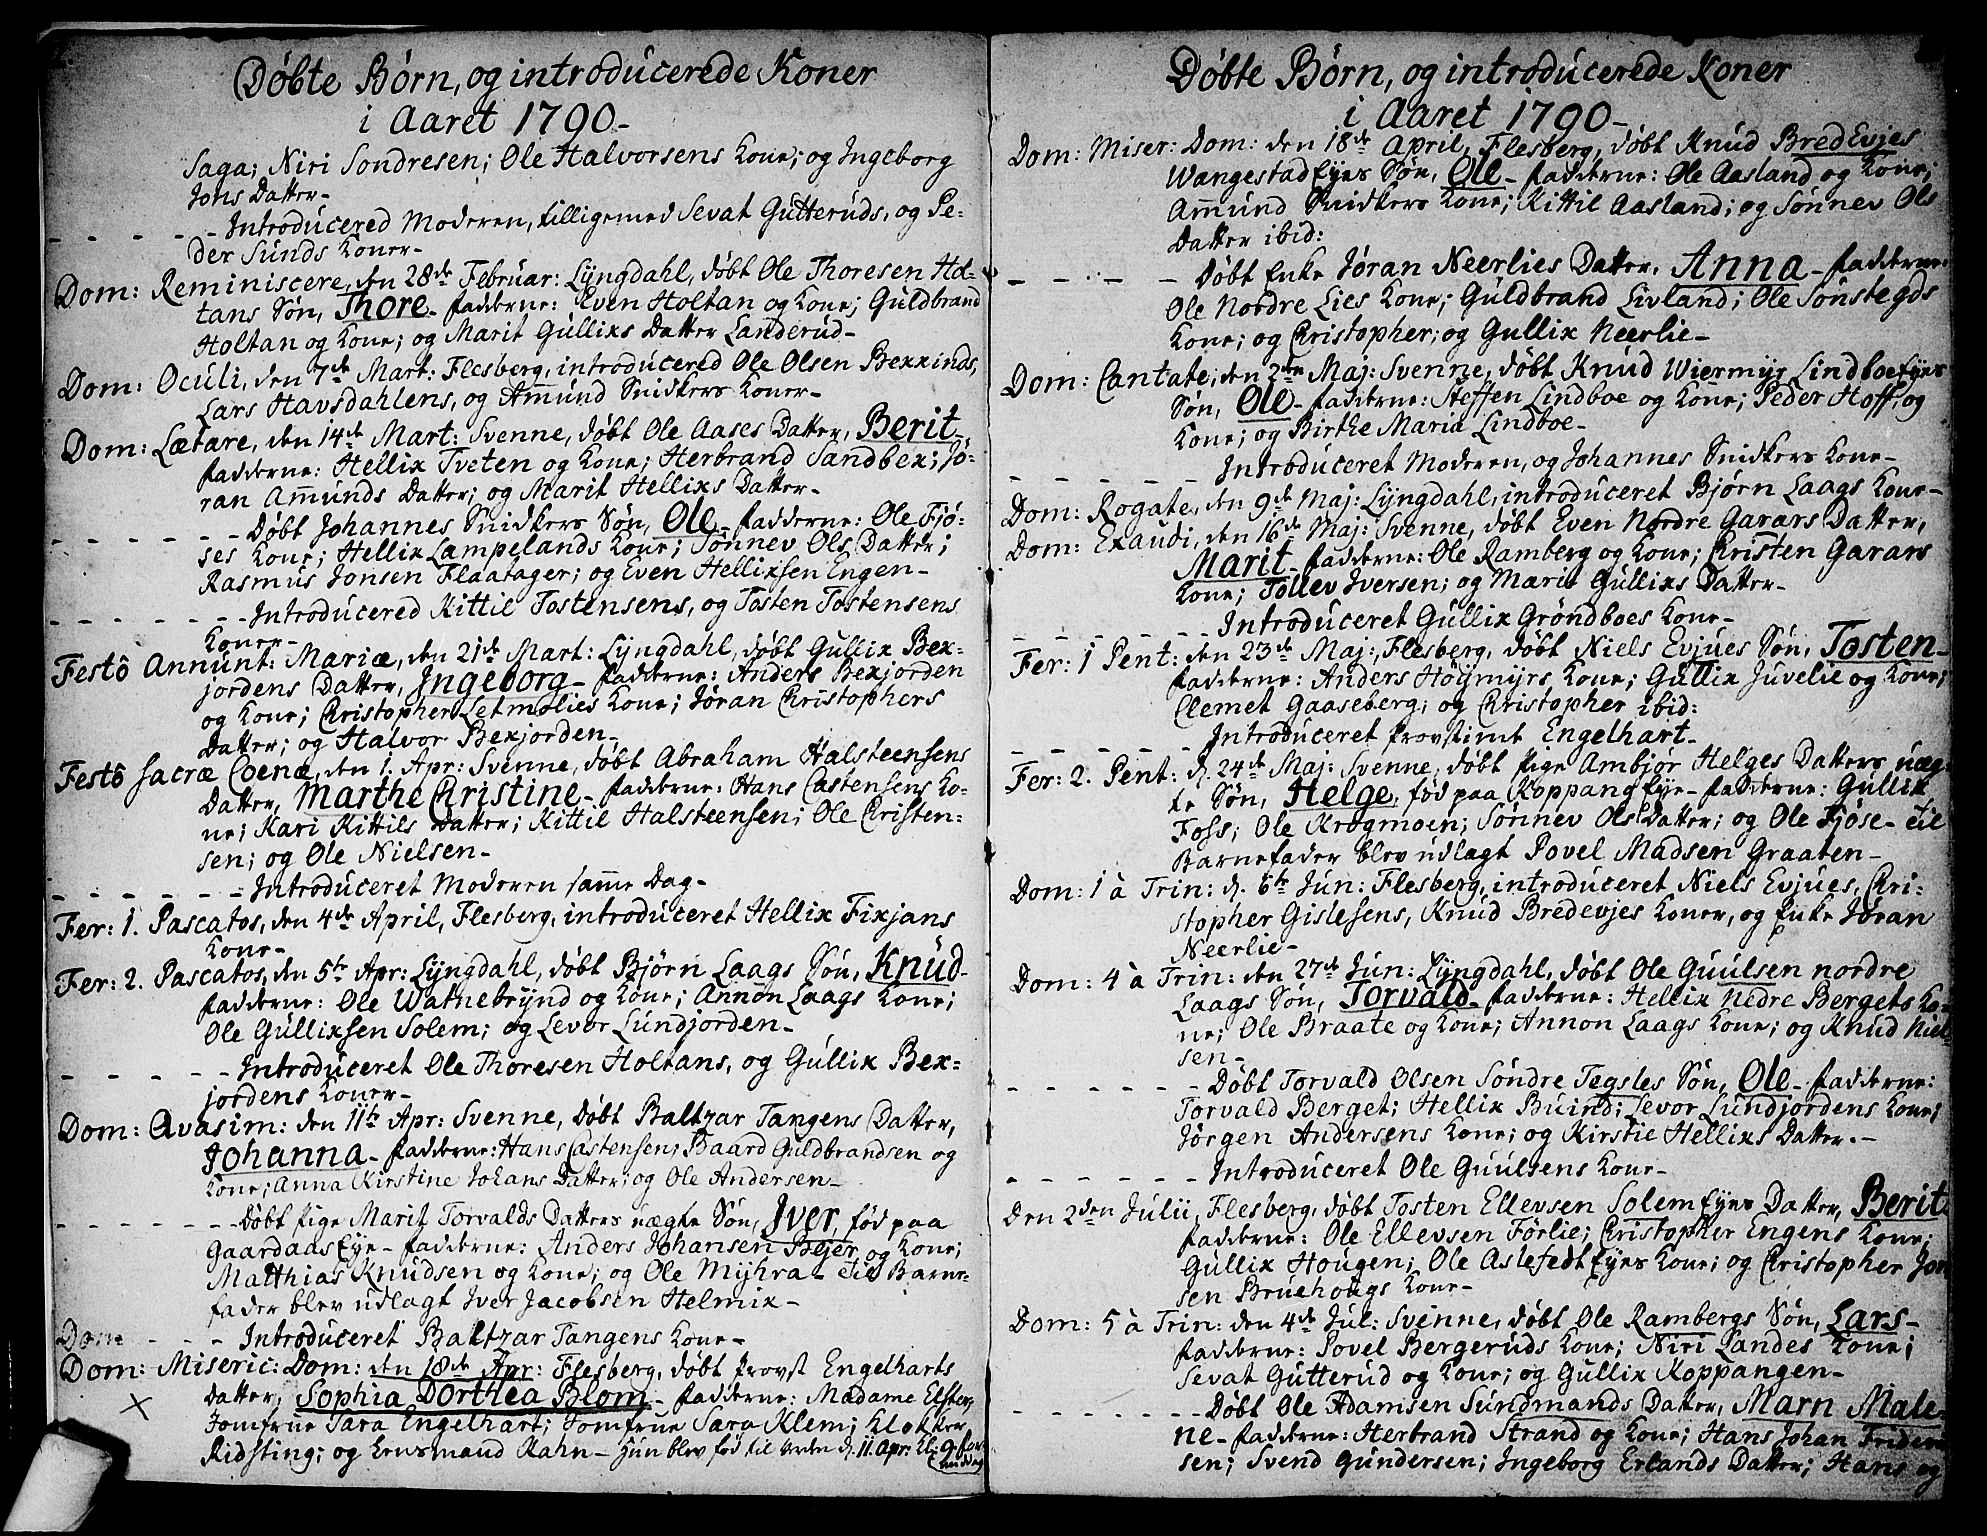 Døbte Børn, og introdúcerede Koner
i Aaret 1790-
Saga; Niri Sondresen; Ole Halvorsens Kone; og Ingeborg
Jons Datter-
- - - - - - Introdúcered Moderen, tilligemed Sevat Gútterúds, og Pe-
der Súnds Koner-
Dom: Reminiscere, den 28de Februar: Lÿngdahl, døbt Ole Thoresen Hol-
tans Søn, Thore- fadderne: Even Holtan og Kone; Gúldbrand
Holtan og Kone; og Marit Gúllixs Datter Landerúd-
Dom: Oculi, den 7de Mart: Flesberg, introdúcered Ole Olsen Bexxinds,
Lars Havsdahlens, og Amúnd Snidkers Koner-
Dom: Lætare, den 14de Mart: Svenne, døbt Ole Aases Datter, Berit-
fadderne: Hellix Tveten og Kone; Herbrand Sandbex; Jö-
ran Amúnds Datter; og Marit Hellixs Datter-
- - - - - - Døbt Johannes Snidkers Søn, Ole- fadderne: Ole Fjö-
ses Kone; Hellix Lampelands Kone; Sønnev Ols Datter;
Rasmús Jonsen Flaatager; og Even Hellixsen Engen-
- - - - - - Introdúcered Kittil Tostensens, og Tosten Tostensens
Koner-
Festô Annúnt: Mariæ, den 21de Mart: Lÿngdahl, døbt Gúllix Bex-
jordens Datter, Ingeborg- fadderne: Anders Bexjorden
og Kone; Christopher Letmolies Kone; Jøran Christophers
Datter; og Halvor Bexjorden-
Festô sacræ Coenæ, den 1. Apr: Svenne, døbt Abraham Halsteensens
Datter, Marthe Christine- fadderne: Hans Castensens Ko-
ne; Kari Kittils Datter; Kittil Halsteensen; Ole Christen-
sen; og Ole Nielsen-
- - - - - - Introdúceret Moderen samme Dag-
Fer: 1. Pascatos, den 4de April, Flesberg, introdúceret Hellix Fixjans
Kone-
Fer: 2. Pascatos, den 5te Apr: Lÿngdahl, døbt Bjørn Laags Søn, Knúd-
fadderne: Ole Watnebrÿnd og Kone; Annon Laags Kone;
Ole Gúllixsen Solem; og Levor Lúndjorden-
- - - - - - Introdúceret Ole Thoresen Holtans, og Gúllix Bex-
jordens Koner-
Dom: Qvasim: den 11te Apr: Svenne, døbt Baltzar Tangens Datter,
Johanna- fadderne: Hans Castensen; Baard Gúldbrandsen og
Kone; Anna Kirstine Johans Datter; og Ole Andersen-
- - - - - - Døbt Pige Marit Torvalds Datters uægte Søn, Iver, fød paa
Gaardaas Eÿe- fadderne: Anders Johansen Bejer og Kone;
Matthias Knúdsen og Kone; og Ole Mÿhra- Til Barne-
fader blev údlagt Iver Jacobsen Helmix-
Dom - - - Introdúceret Baltzar Tangens Kone-
Dom: Miseric: Dom: den 18de Apr: Flesberg, døbt Provst Engelharts
Datter, Sophia Dorthea Blom- fadderne: Madame Elster,
Jomfrúe Sara Engelhart; Jomfrúe Sara Klem; Klokker
Ridsting; og Lensmand Rahn- hun blev fød til Verden d. 11. Apr: Kl: 9 for
middag
Døbte Børn, og introdúcerede Koner
i Aaret 1790-
Dom: Miser: Dom: den 18de April, Flesberg, døbt Knúd BredEvjes
Wangestad Eÿes Søn, Ole- fadderne: Ole Aasland og Kone;
Amúnd Snidkers Kone; Kittil Aasland; og Sønnev Ols
Datter ibid:
- - - - - Døbt Enke Jøran Neerlies Datter, Anna- fadderne:
Ole Nordre Lies Kone; Gúldbrand Livland; Ole Sønstegds
Kone; og Christopher; og Gullix Neerlie-
Dom: Cantate, den 2den Maj: Svenne, døbt Knúd Wiermyr Lindboe Eÿes
Søn, Ole- fadderne: Steffen Lindboe og Kone; Peder Hoff, og
Kone; og Birthe Maria Lindboe-
- - - - - Introdúceret Moderen, og Johannes Snidkers Kone-
Dom: Rogate, den 9de Maj: Lÿngdahl, introdúceret Bjørn Laags Kone-
Dom: Exaúdi, den 16de Maj: Svenne, døbt Even Nordre Garars Datter,
Marit- fadderne: Ole Ramberg og Kone; Christen Garars
Kone; Tollev Iversen; og Marit Gúllixs Datter-
- - - - - Introdúceret Gúllix Grøndboes Kone-
Fer: 1 Pent: den 23de Maj:, Flesberg, døbt Niels Evjúes Søn, Tosten-
fadderne: Anders Höÿmÿrs Kone; Gúllix Júvelie og Kone;
Clemet Gaaseberg; og Christopher ibid:
- - - - - Introdúceret Provstinde Engelhart-
Fer: 2. Pent: d. 24de Maj: Svenne, døbt Pige Ambjør Helges Datters uæg-
te Søn, Helge, fød paa Koppang Eÿe- fadderne: Gúllix
Foss; Ole Krogmoen; Sønnev Ols Datter; og Ole Fjøse- Til
Barnefader blev údlagt Povel Madsen Graaten-
Dom: 1 à Trin: d. 6te Jun: Flesberg, introdúceret Niels Evjúes, Chri-
stopher Gislesens, Knúd Bredevjes Koner, og Enke Jøran
Neerlie-
Dom: 4 à Trin: den 27de Jun: Lÿngdahl, døbt Ole Gúúlsen nordre
Laags Søn, Torvald- fadderne: Hellix Nedre Bergets Ko-
ne; Ole Braate og Kone; Annon Laags Kone; og Knúd Niel-
sen-
- - - - - Døbt Torvald Olsen Søndre Tegsles Søn, Ole- fadderne:
Torvald Berget; Hellix Búind; Levor Lúndjordens Kone;
Jørgen Andersens Kone; og Kirstie Hellixs Datter.-
- - - - - Introdúceret Ole Gúúlsens Kone-
Den 2den Julii, Flesberg, døbt Tosten Ellevsen Solem Eÿes Datter, Berit
fadderne: Ole Ellevsen Förlie; Christopher Engens Kone;
Gúllix Hoúgen; Ole Aslefedt Eÿes Kone; og Christopher Jon
sen Brúehoúgs Kone-
Dom: 5 à Trin: den 4de Jul: Svenne, døbt Ole Rambergs Søn, Lars-
fadderne: Povel Bergerúds Kone; Niri Landes Kone;
Sevat Gútterúd og Kone; og Gúllix Koppangen-
- - - - - Døbt Ole Adamsen Súndmands Datter, Marn Male-
ne- fadderne: Herbrand Strand og Kone; Hans Johan Frider
sen; Svend Gúndersen; Ingeborg Erlands Datter; Hans og